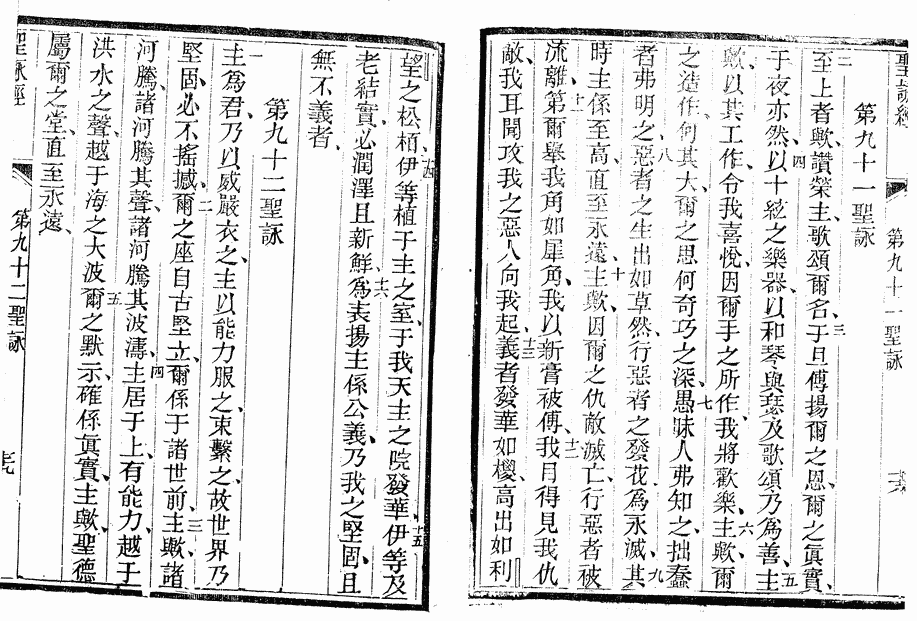 聖詠經
第九十一聖詠
第九十一聖詠
二
至上者歟讚榮主歌頌爾名、三于旦傅揚爾之恩、爾之眞實、
于夜亦然、四以十絃之樂器、以和琴與瑟、及歌頌乃爲善、五主
歟以其工作、令我喜悅、因爾手之所作、我將歡樂、六主歟、爾
之造作、何其大、爾之思何奇巧之深、七愚昧人弗知之、拙蠢
者弗明之、八惡者之生出如草然、行惡者之發花爲永滅、九其
時主係至高、直至永遠、十主歟、因爾之仇敵滅亡、行惡者被
流離、十一第爾舉我角如犀角、我以新膏被傅、十二我目得見我仇
敵、我耳聞攻我之惡人向我起、十三義者發華如椶、高出如利
望之松栢、十四伊等植于主之室、于我天主之院發華、十五伊等及
老結實、必潤澤且新鮮、十六爲表揚主係公義、乃我之堅固、且
無不義者、
第九十二聖詠
一
主爲君、乃以威嚴衣之、主以能力服之、束繫之、故世界乃
堅固、必不搖撼、二爾之座自古堅立、爾係于諸世前、三主歟、諸
河騰、諸河騰其聲、諸河騰其波濤、四主居于上、有能力、越于
洪水之聲、越于海之大波、五爾之默示、確係眞實、主歟、聖德
屬爾之堂、直至永遠、
聖詠經
第九十二聖詠